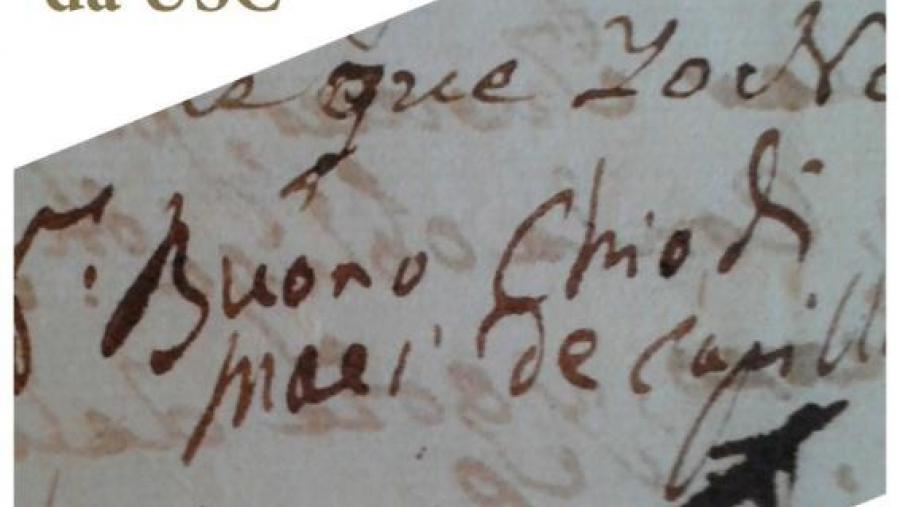 da USC
que Yo
Buono Chiodi
maes de capill